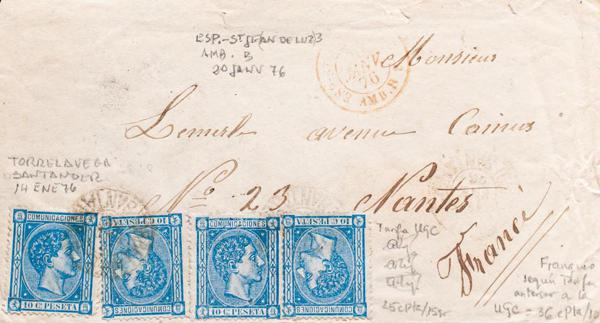 ESP.-St JEAN DE LUZ 3
AMB. B
20 JANV 76
JANV
76
AMB. B
Monsieur
Lemerle avenue Camus
TORRELAVEGA
SANTANDER
14 ENE 76
No. 23 Nantes
France
COMUNICACIONES
10 C. PESETA
COMUNICACIONES
10 C. PESETA
COMUNICACIONES
10 C. PESETA
COMUNICACIONES
10 C. PESETA
Tarifa UGC
25 cpta/15gr
Franqueo
según tarifa
anterior a la
UGC = 36 cpta/10